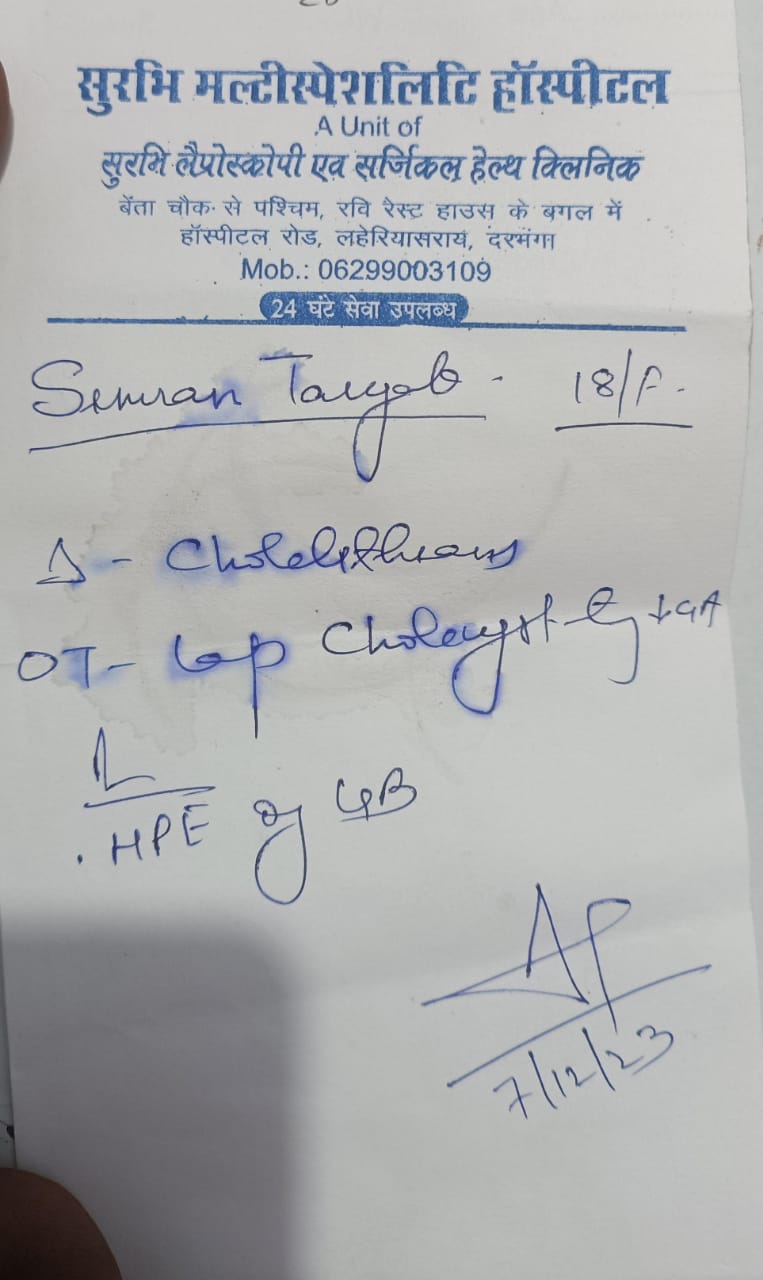 सुरभि मल्टीस्पेशलिटि हॉस्पीटल
A Unit of
सुरभि लैप्रोस्कोपी एव सर्जिकल हेल्थ क्लिनिक
बेंता चौक से पश्चिम, रवि रेस्ट हाउस के बगल में
हॉस्पीटल रोड, लहेरियासराय, दरभंगा
Mob.: 06299003109
24 घंटे सेवा उपलब्ध
Simran Tayyab - 18/F.
Δ - Cholelithiasis
OT - Lap Cholecyst-y ↓ GA
HPE of GB
7/12/23